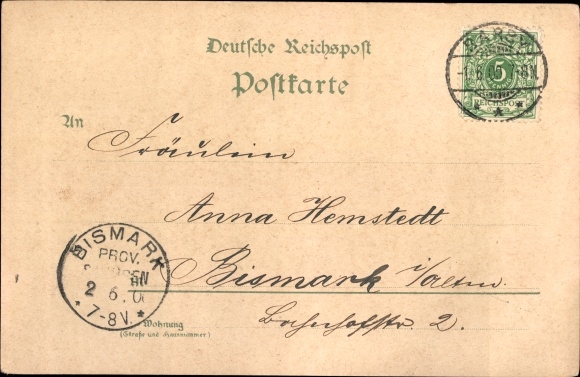 Deutsche Reichspost
Postkarte
5
REICHSPOST
An
Fräulein
Anna Hemstedt
BISMARK
PROV.
2 6.0
* 7-8V. *
in
Bismark i/Altm.
Bahnhofstr. 2.
Wohnung
(Straße und Hausnummer)